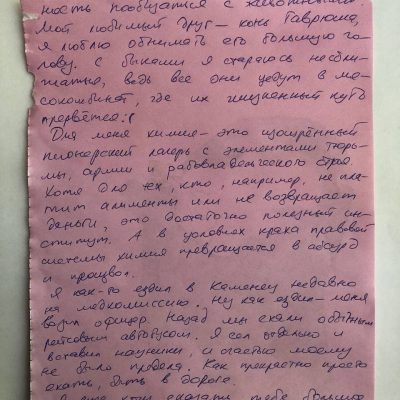 ность пообщаться с животными.
Мой любимый друг – конь Гаврюша,
я люблю обнимать его большую го-
лову. С быками я стараюсь не сбли-
жаться, ведь все они уедут в мя-
сокомбинат, где их жизненный путь
прервётся :(
Для меня химия – это изощрённый
пионерский лагерь с элементами тюрь-
мы, армии и рабовладельческого строя.
Хотя для тех, кто, например, не пла-
тит алименты или не возвращает
деньги, это достаточно полезный ин-
ститут. А в условиях краха правовой
системы химия превращается в абсурд
и произвол.
Я как-то ездил в Каменец недавно
на медкомиссию. Ну как ездил – меня
возил офицер. Назад мы ехали обычным
рейсовым автобусом. Я сел отдельно и
вставил наушники, и счастью моему
не было предела. Как прекрасно просто
ехать, быть в дороге.
хочу сказать тебе большое